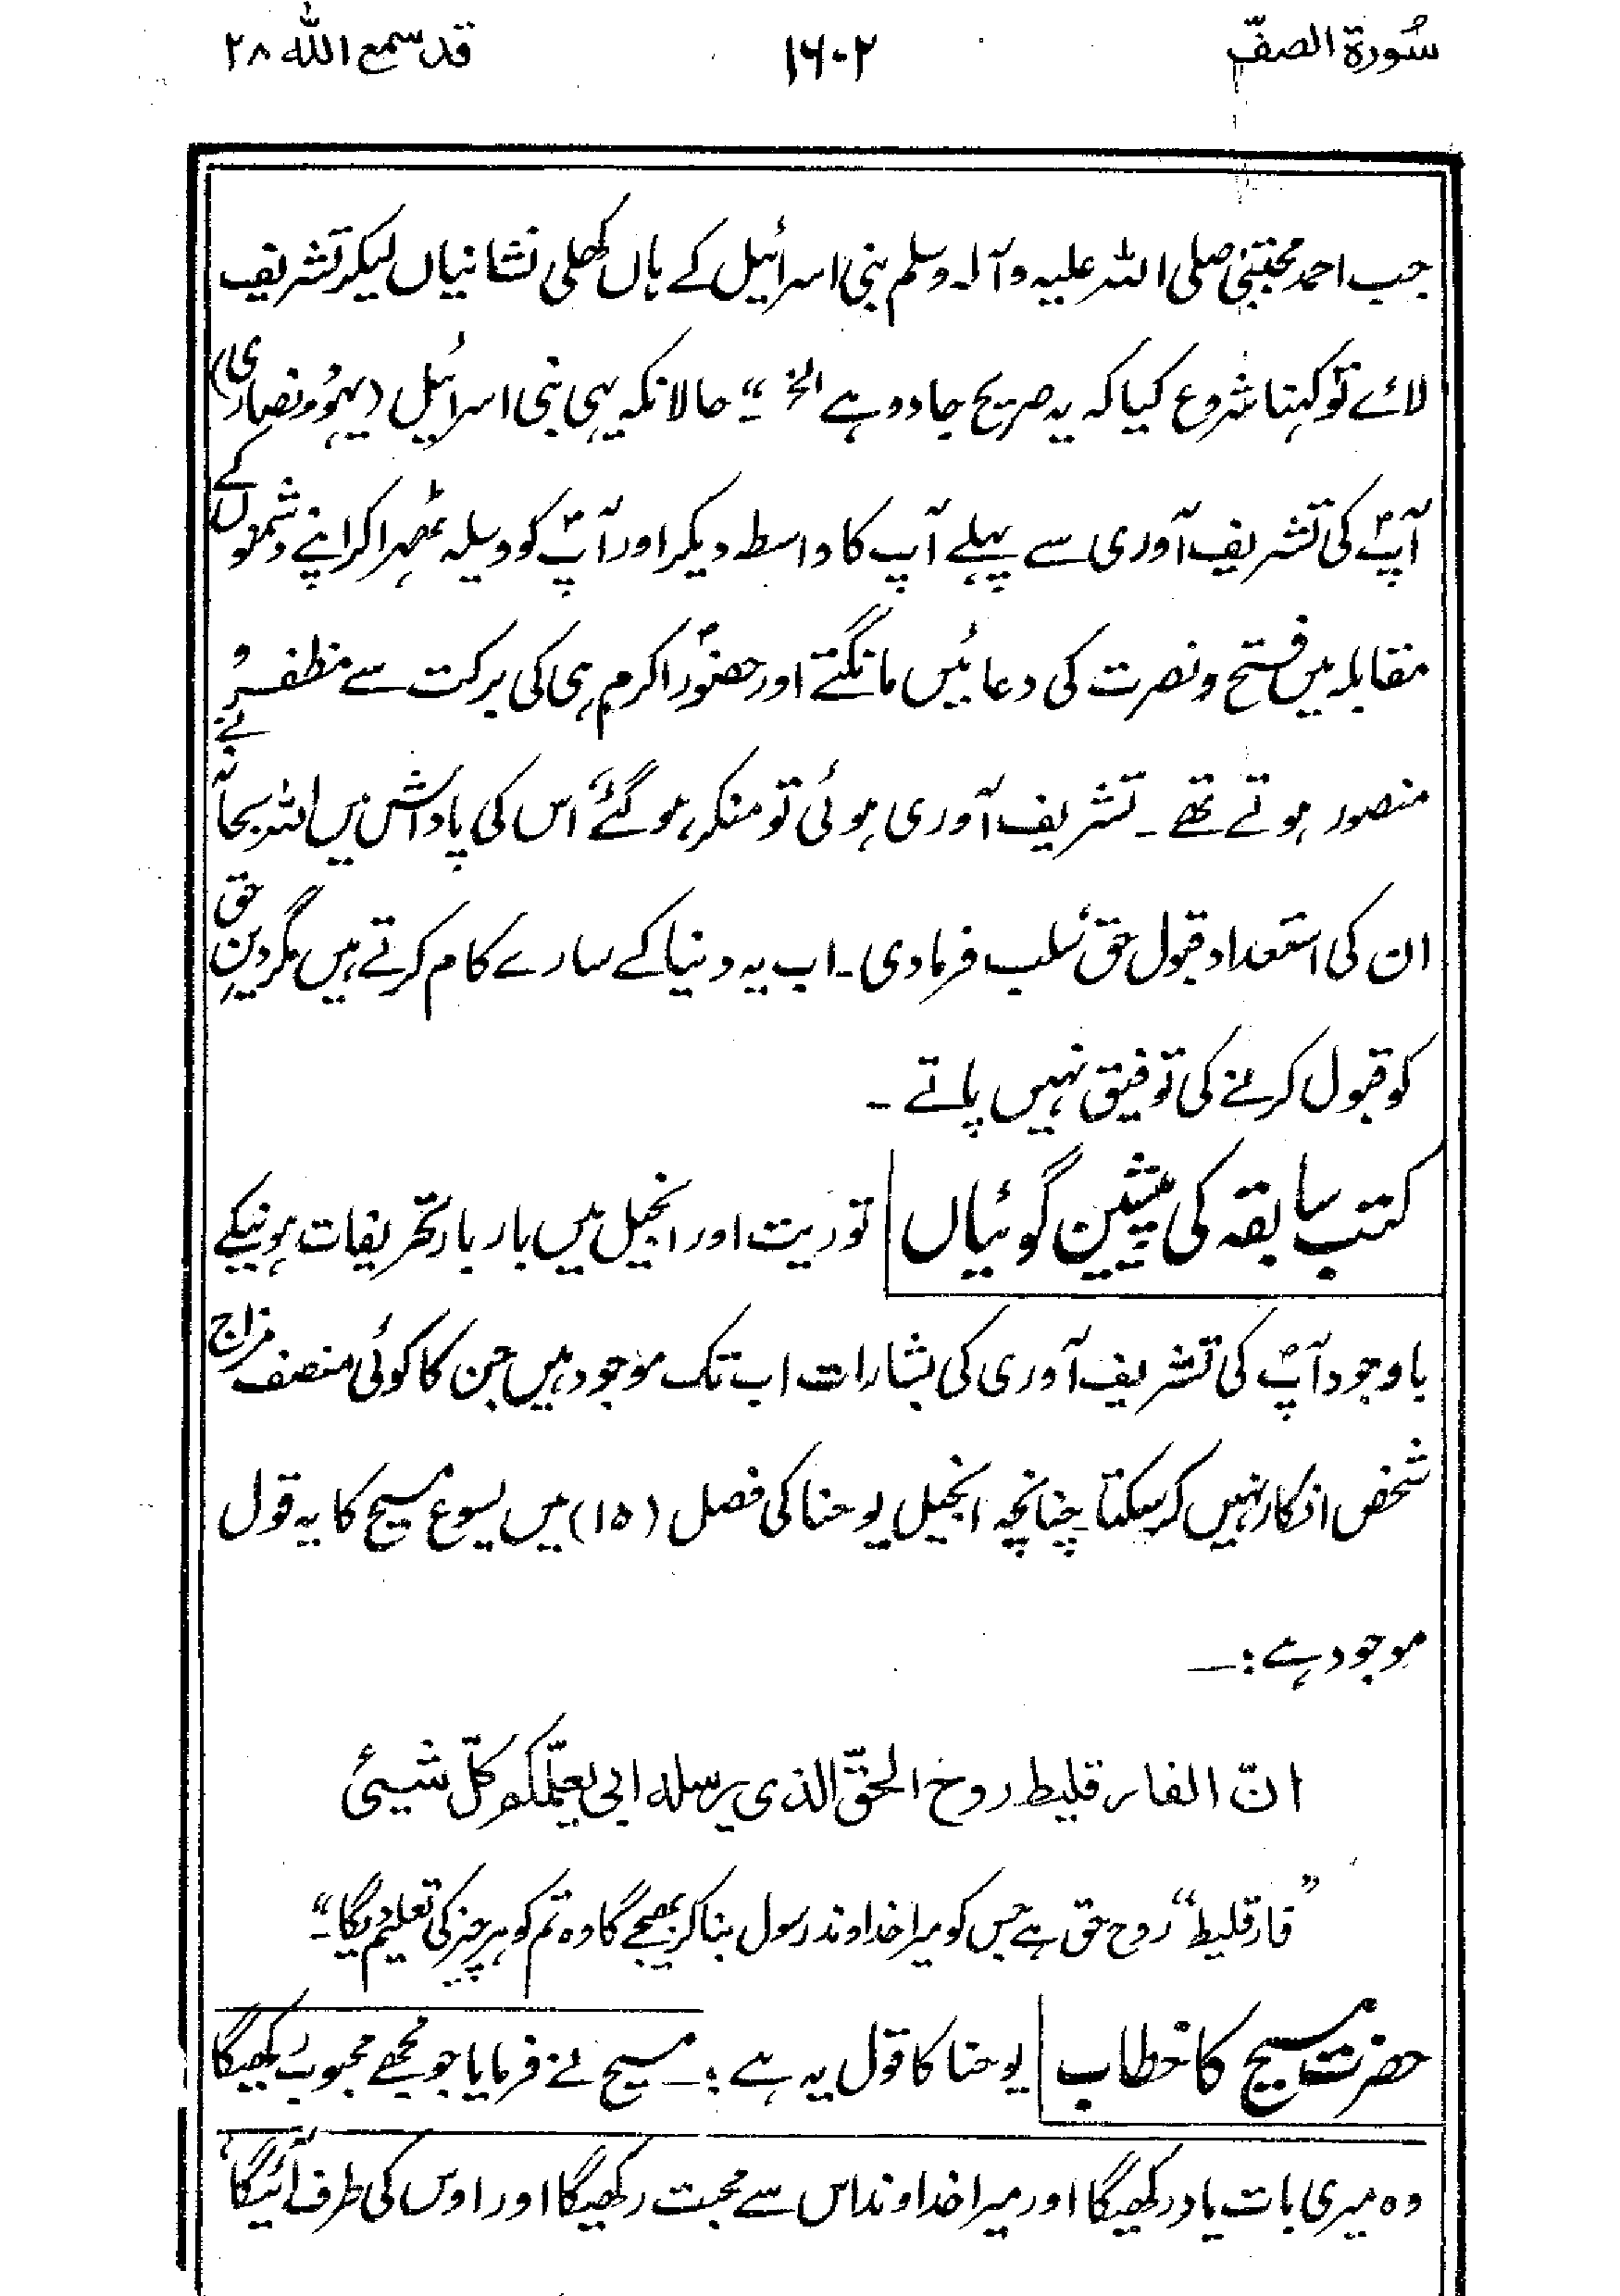 سُورة الصفّ ١٦٠٢ قد سمع الله ٢٨
جب احمد مجتبیٰ صلی اللہ علیہ وآلہ وسلم بنی اسرائیل کے ہاں کھلی نشانیاں لیکر تشریف
لائے تو کہنا شروع کیا کہ یہ صریح جادو ہے الخ“۔ حالانکہ یہی بنی اسرائیل (یہود ونصاریٰ)
آپؐ کی تشریف آوری سے پہلے آپ کا واسطہ دیکر اور آپؐ کو وسیلہ ٹھہرا کر اپنے دشمنوں کے
مقابلہ میں فتح ونصرت کی دعائیں مانگتے اور حضورؐ اکرم ہی کی برکت سے مظفر و
منصور ہوتے تھے۔ تشریف آوری ہوئی تو منکر ہو گئے اس کی پاداش میں اللہ سبحانہٗ نے
ان کی استعداد قبول حق سلب فرمادی۔ اب یہ دنیا کے سارے کام کرتے ہیں مگر دینِ حق
کو قبول کرنے کی توفیق نہیں پاتے۔
کتب سابقہ کی پیشین گوئیاں توریت اور انجیل میں بار بار تحریفات ہونیکے
باوجود آپؐ کی تشریف آوری کی بشارات اب تک موجود ہیں جن کا کوئی منصف مزاج
شخص انکار نہیں کر سکتا چنانچہ انجیل یوحنا کی فصل (۱۵) میں یسوع مسیح کا یہ قول
موجود ہے:۔
انّ الفارقلیط روح الحقّ الذی یرسله ابی یعلّمکم کلّ شیئ
”فارقلیط“ روح حق ہے جس کو میرا خداوند رسول بنا کر بھیجے گا وہ تم کو ہر چیز کی تعلیم دیگا“۔
حضرت مسیح کا خطاب یوحنا کا قول یہ ہے:۔ مسیح نے فرمایا جو مجھے محبوب رکھیگا
وہ میری بات یاد رکھیگا اور میرا خداوند اس سے محبت رکھیگا اور اوس کی طرف آئیگا